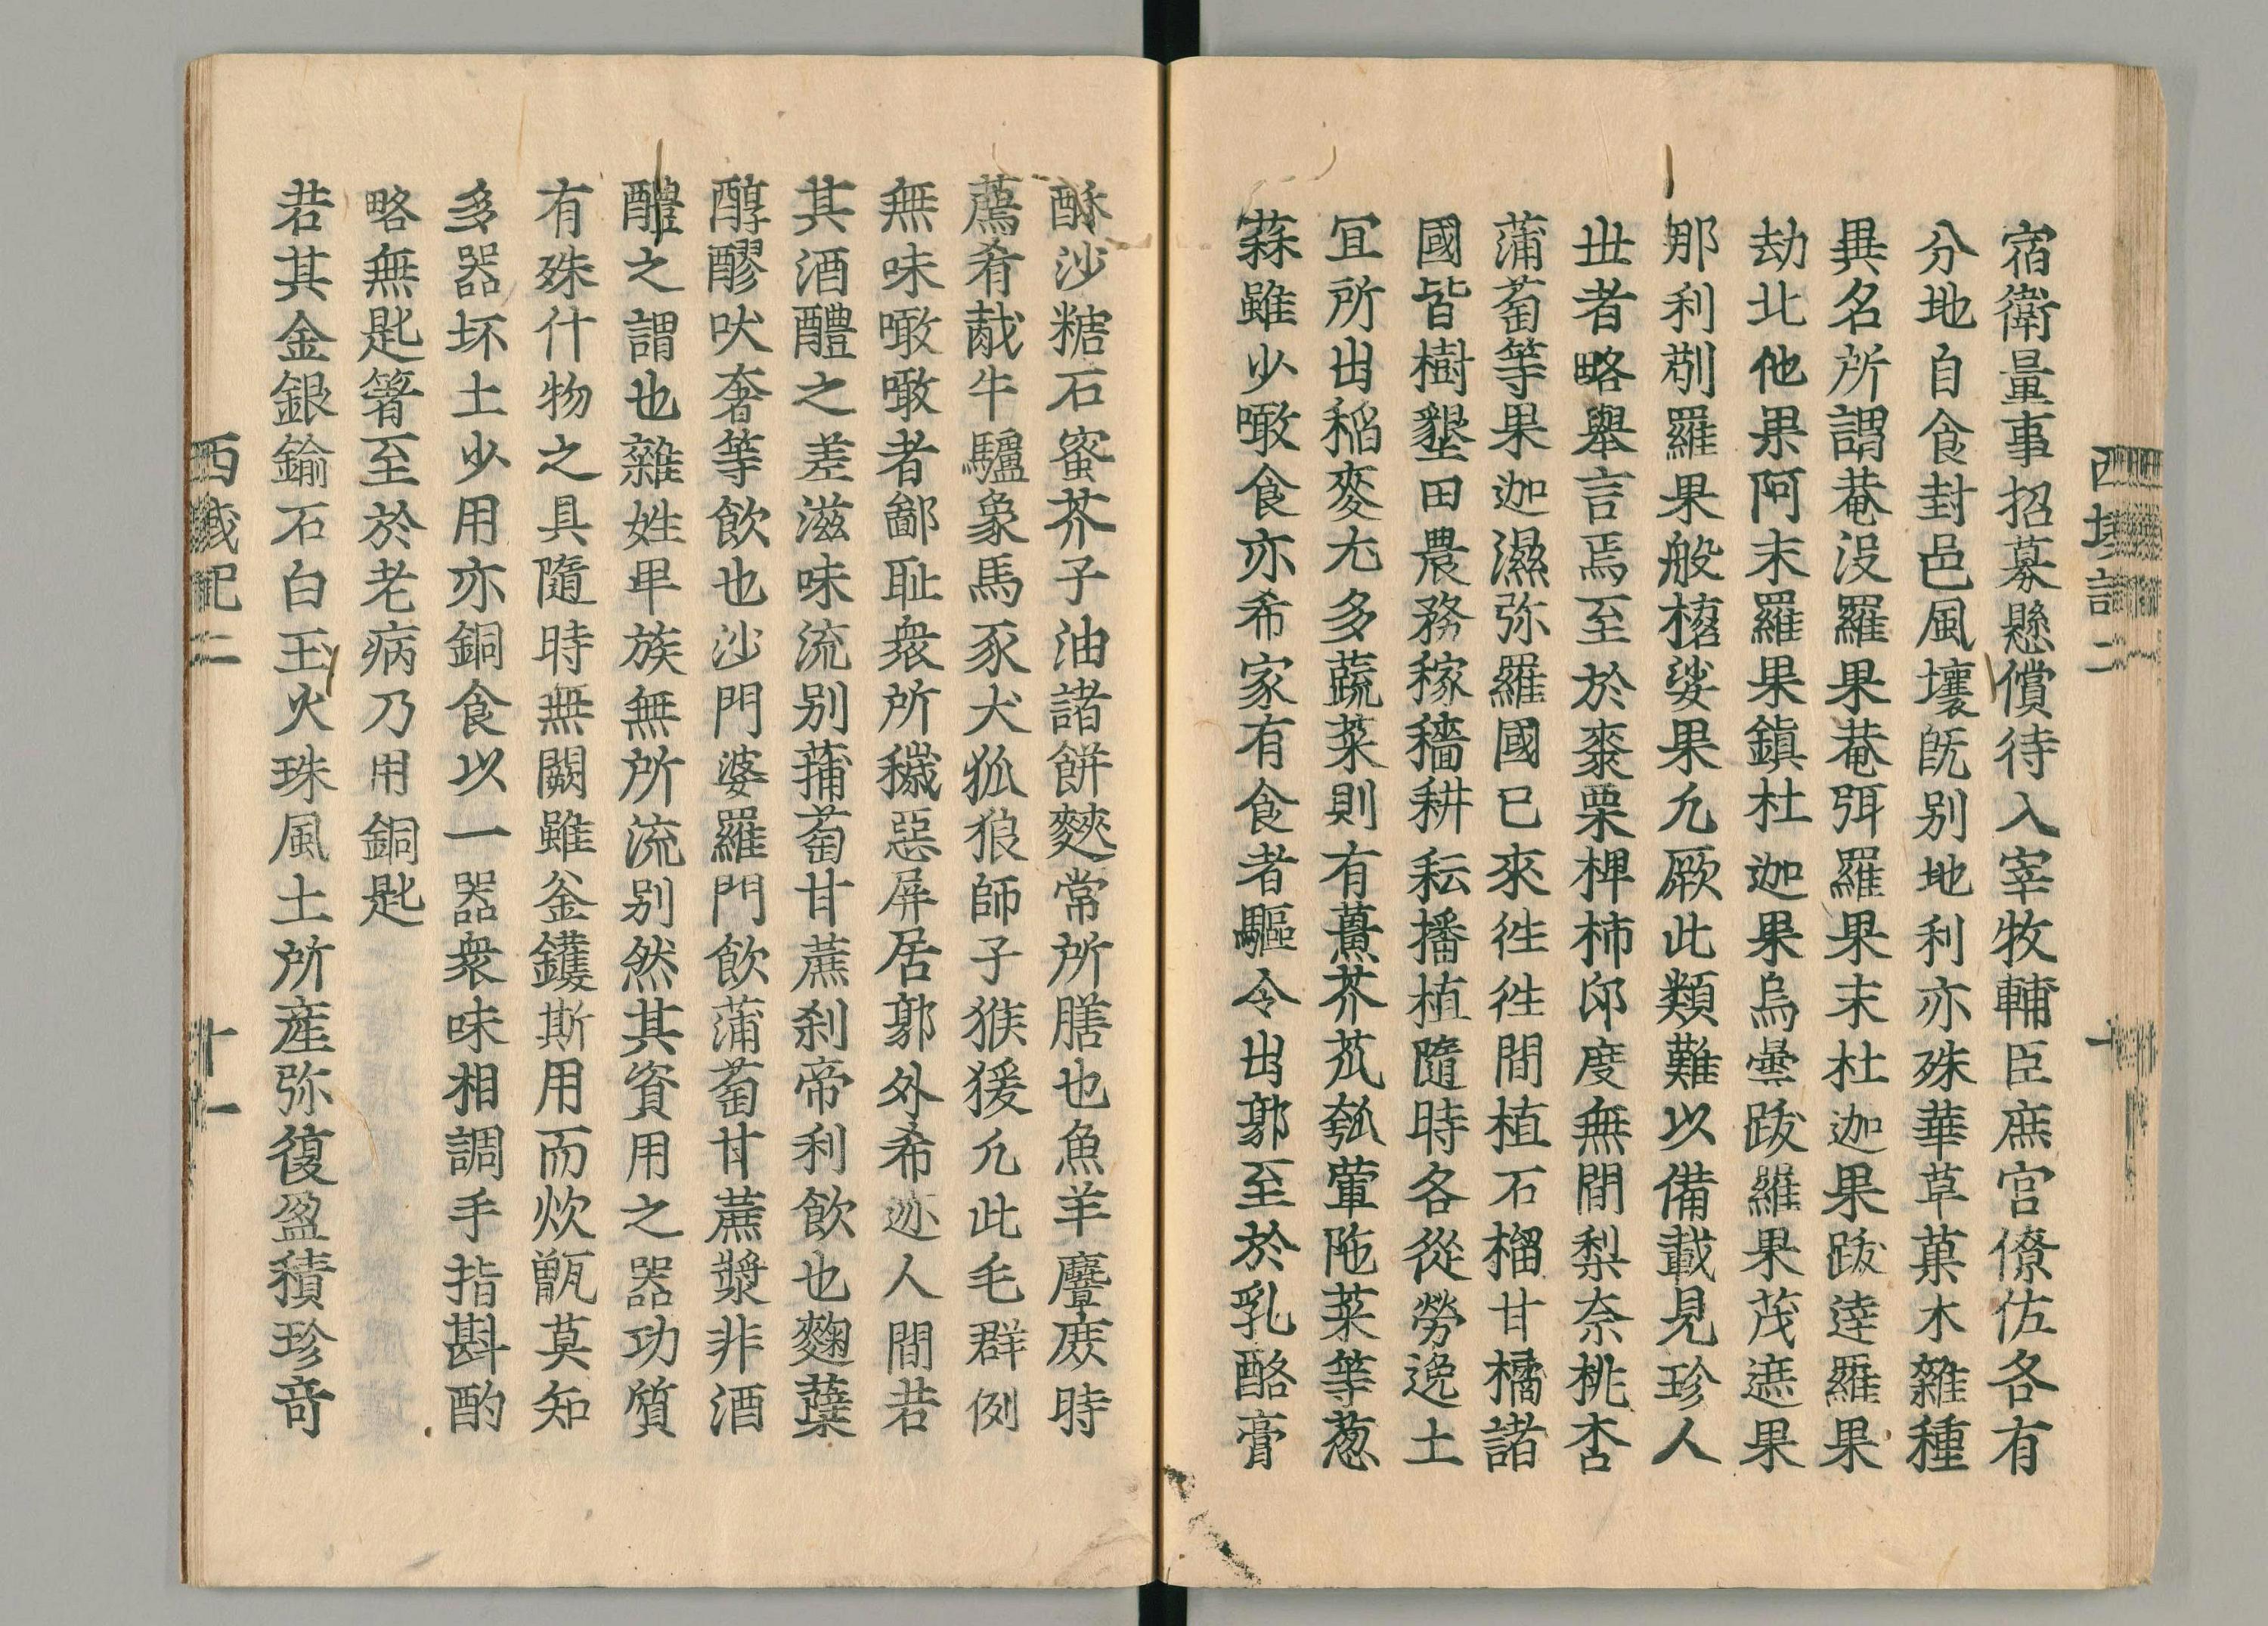 西域記二
十
宿衛量事招募懸償待入宰牧輔臣庶官僚佐各有
分地自食封邑風壤既别地利亦殊華草菓木雜種
異名所謂菴没羅果菴弭羅果末杜迦果跋達羅果
劫北他果阿末羅果鎮杜迦果烏曇跋羅果茂遮果
那利䓶羅果般橠娑果凢厥此類難以備載見珍人
丗者略舉言焉至於棗栗椑柿印度無間梨柰桃杏
蒲萄等果迦濕弥羅國已來徃徃間植石榴甘橘諸
國皆樹墾田農務稼穡耕耘播植隨時各從勞逸土
冝所出稻麥尤多蔬菜則有薑芥苽瓠葷陁菜等葱
蒜雖少噉食亦希家有食者驅令出郭至於乳酪膏
酥沙糖石蜜芥子油諸餅麨常所膳也魚羊麞鹿時
薦肴胾牛驢象馬豕犬狐狼師子猴猨凢此毛群例
無味噉噉者鄙耻衆所穢惡屏居郭外希迹人間若
其酒醴之差滋味流别蒱萄甘蔗刹帝利飲也麹蘖
醇醪吠奢等飲也沙門婆羅門飲蒲萄甘蔗漿非酒
醴之謂也雜姓卑族無所流别然其資用之器功質
有殊什物之具隨時無闕雖釜鑊斯用而炊甑莫知
多器坏土少用赤銅食以一器衆味相調手指斟酌
略無匙箸至於老病乃用銅匙
若其金銀鍮石白玉火珠風土所産弥復盈積珍竒
西域記二
十一